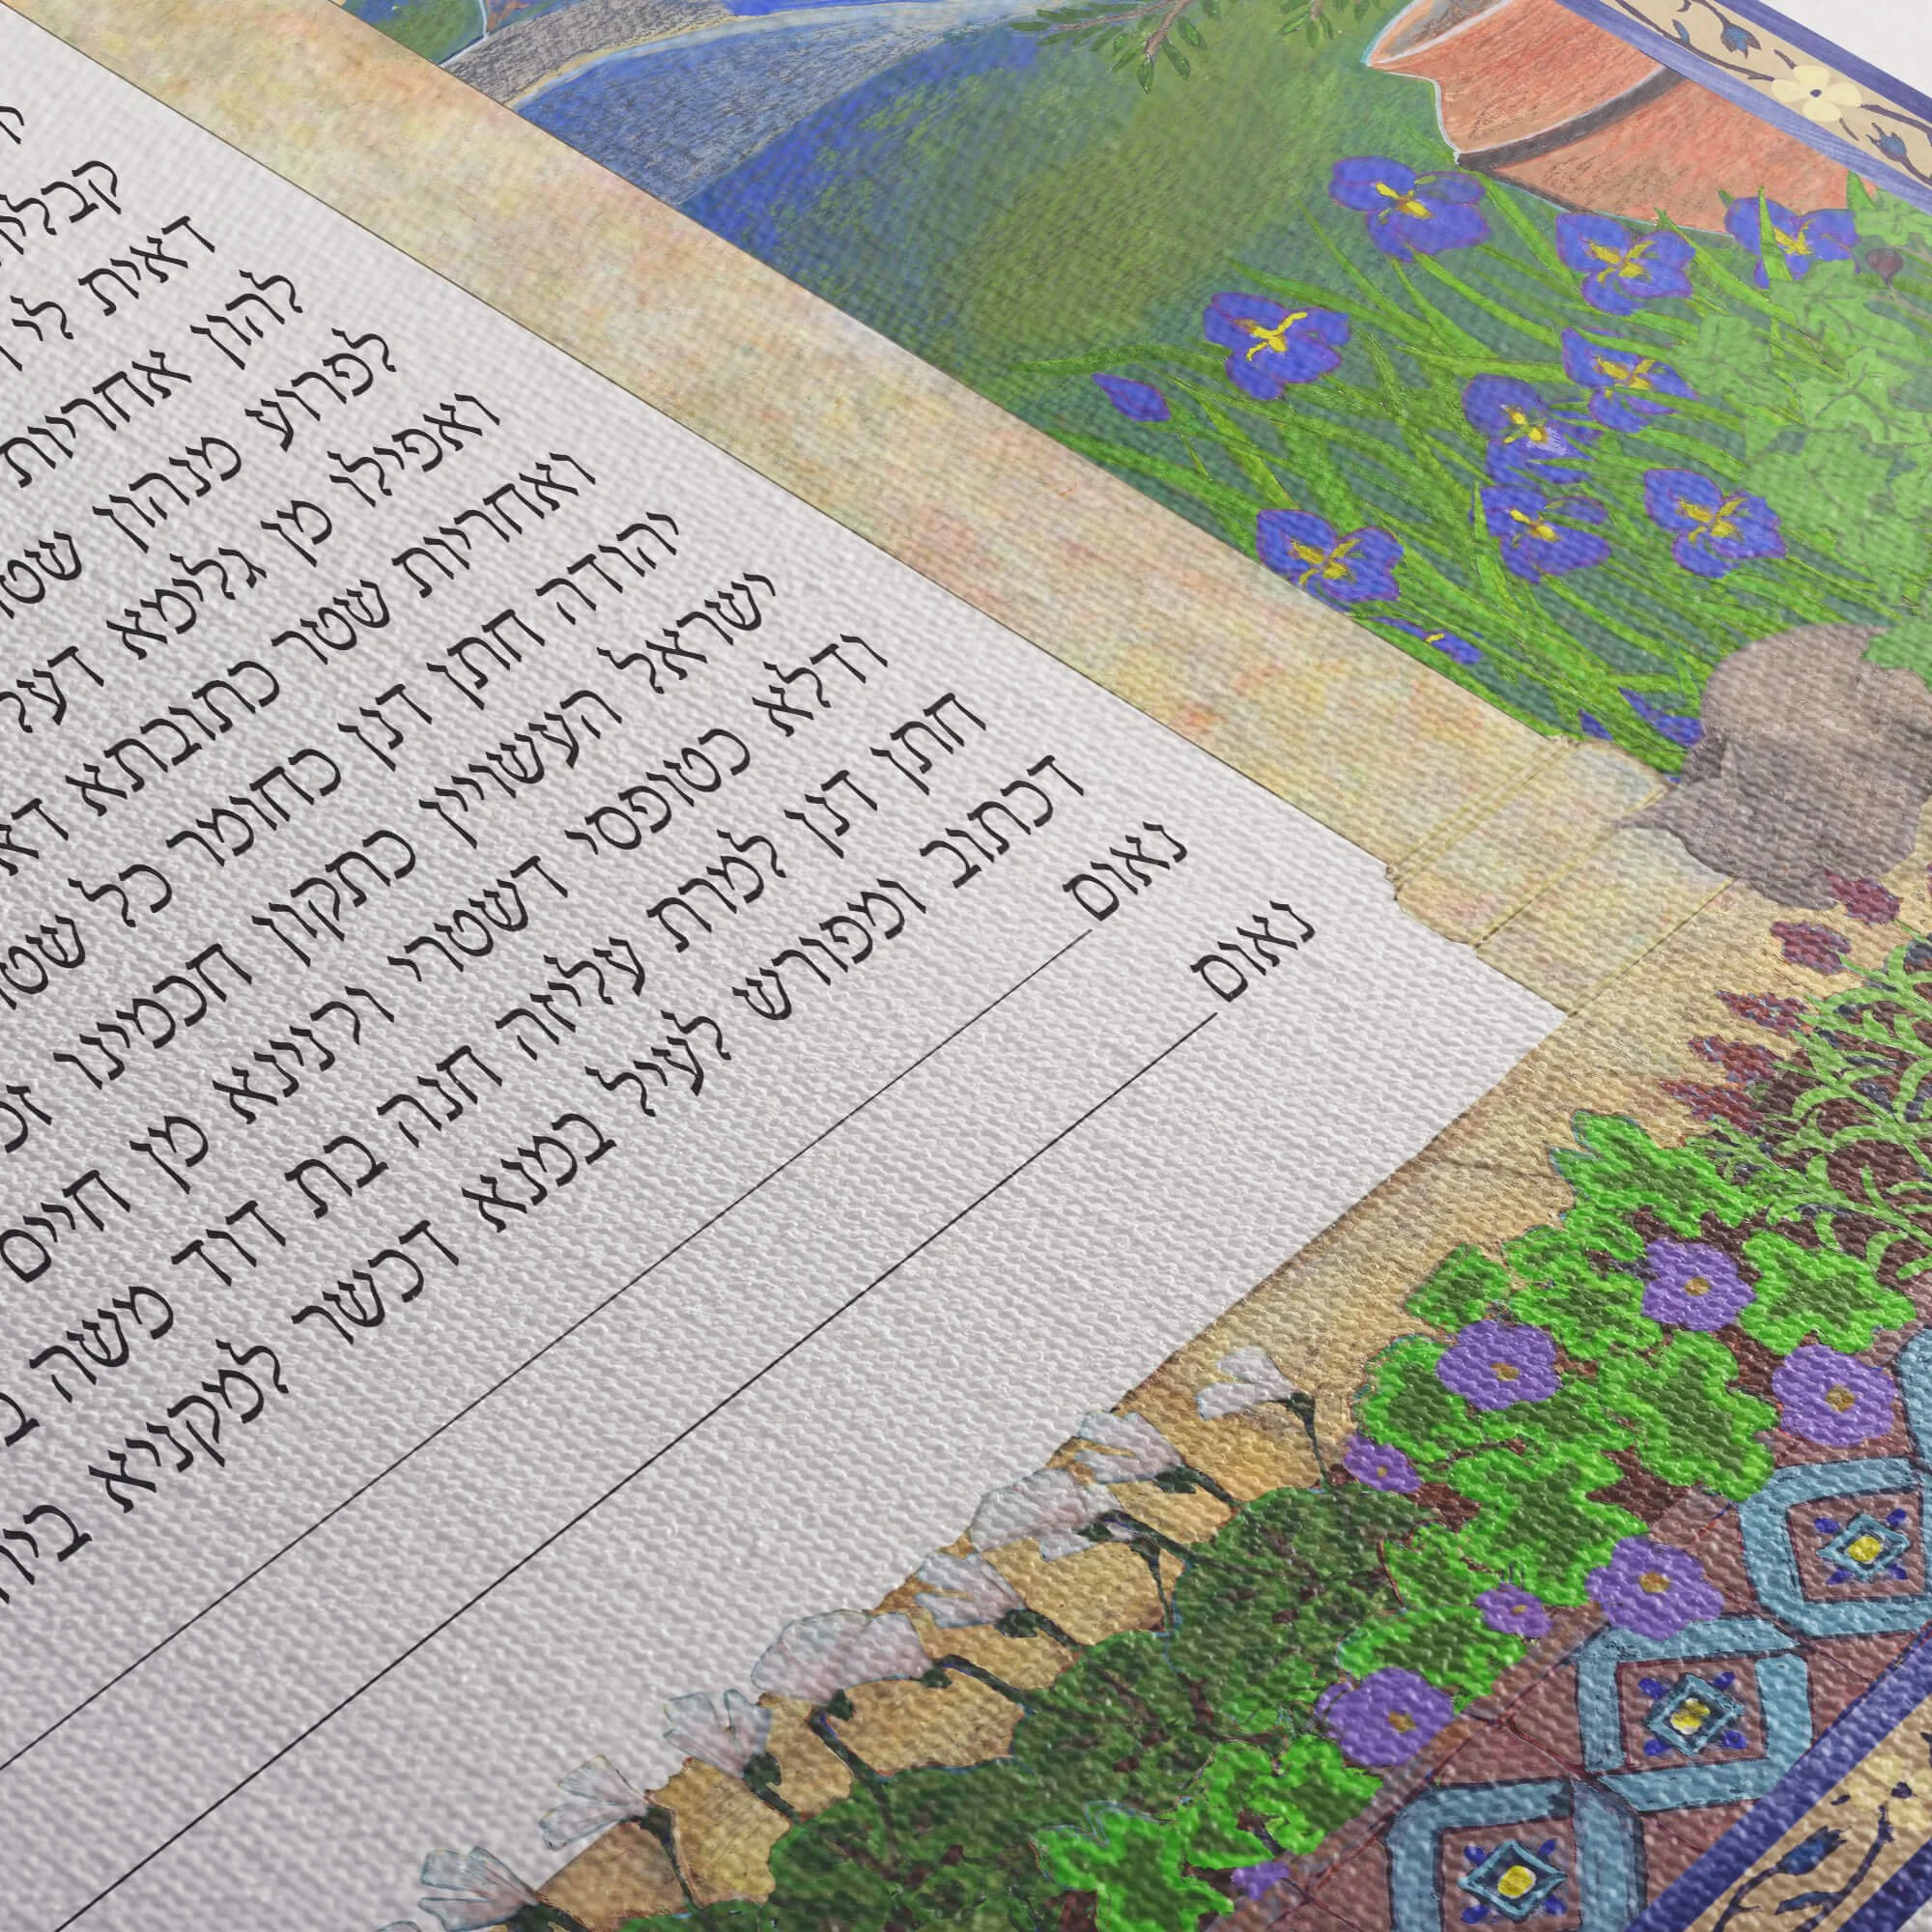 דאית לי
להון אחריות
לפרוע מנהון
ואפילו מן גלימא דעל
ואחריות שטר כתובתא דא
יהודה חתן דנן כחומר כל
ישראל העשויין כתקון חכמינו
ודלא כטופסי דשטרי וקנינא מן חיים
חתן דנן למרת עליזה חנה בת דוד משה
דכתוב ומפורש לעיל במנא דכשר למקניא
נאום
נאום